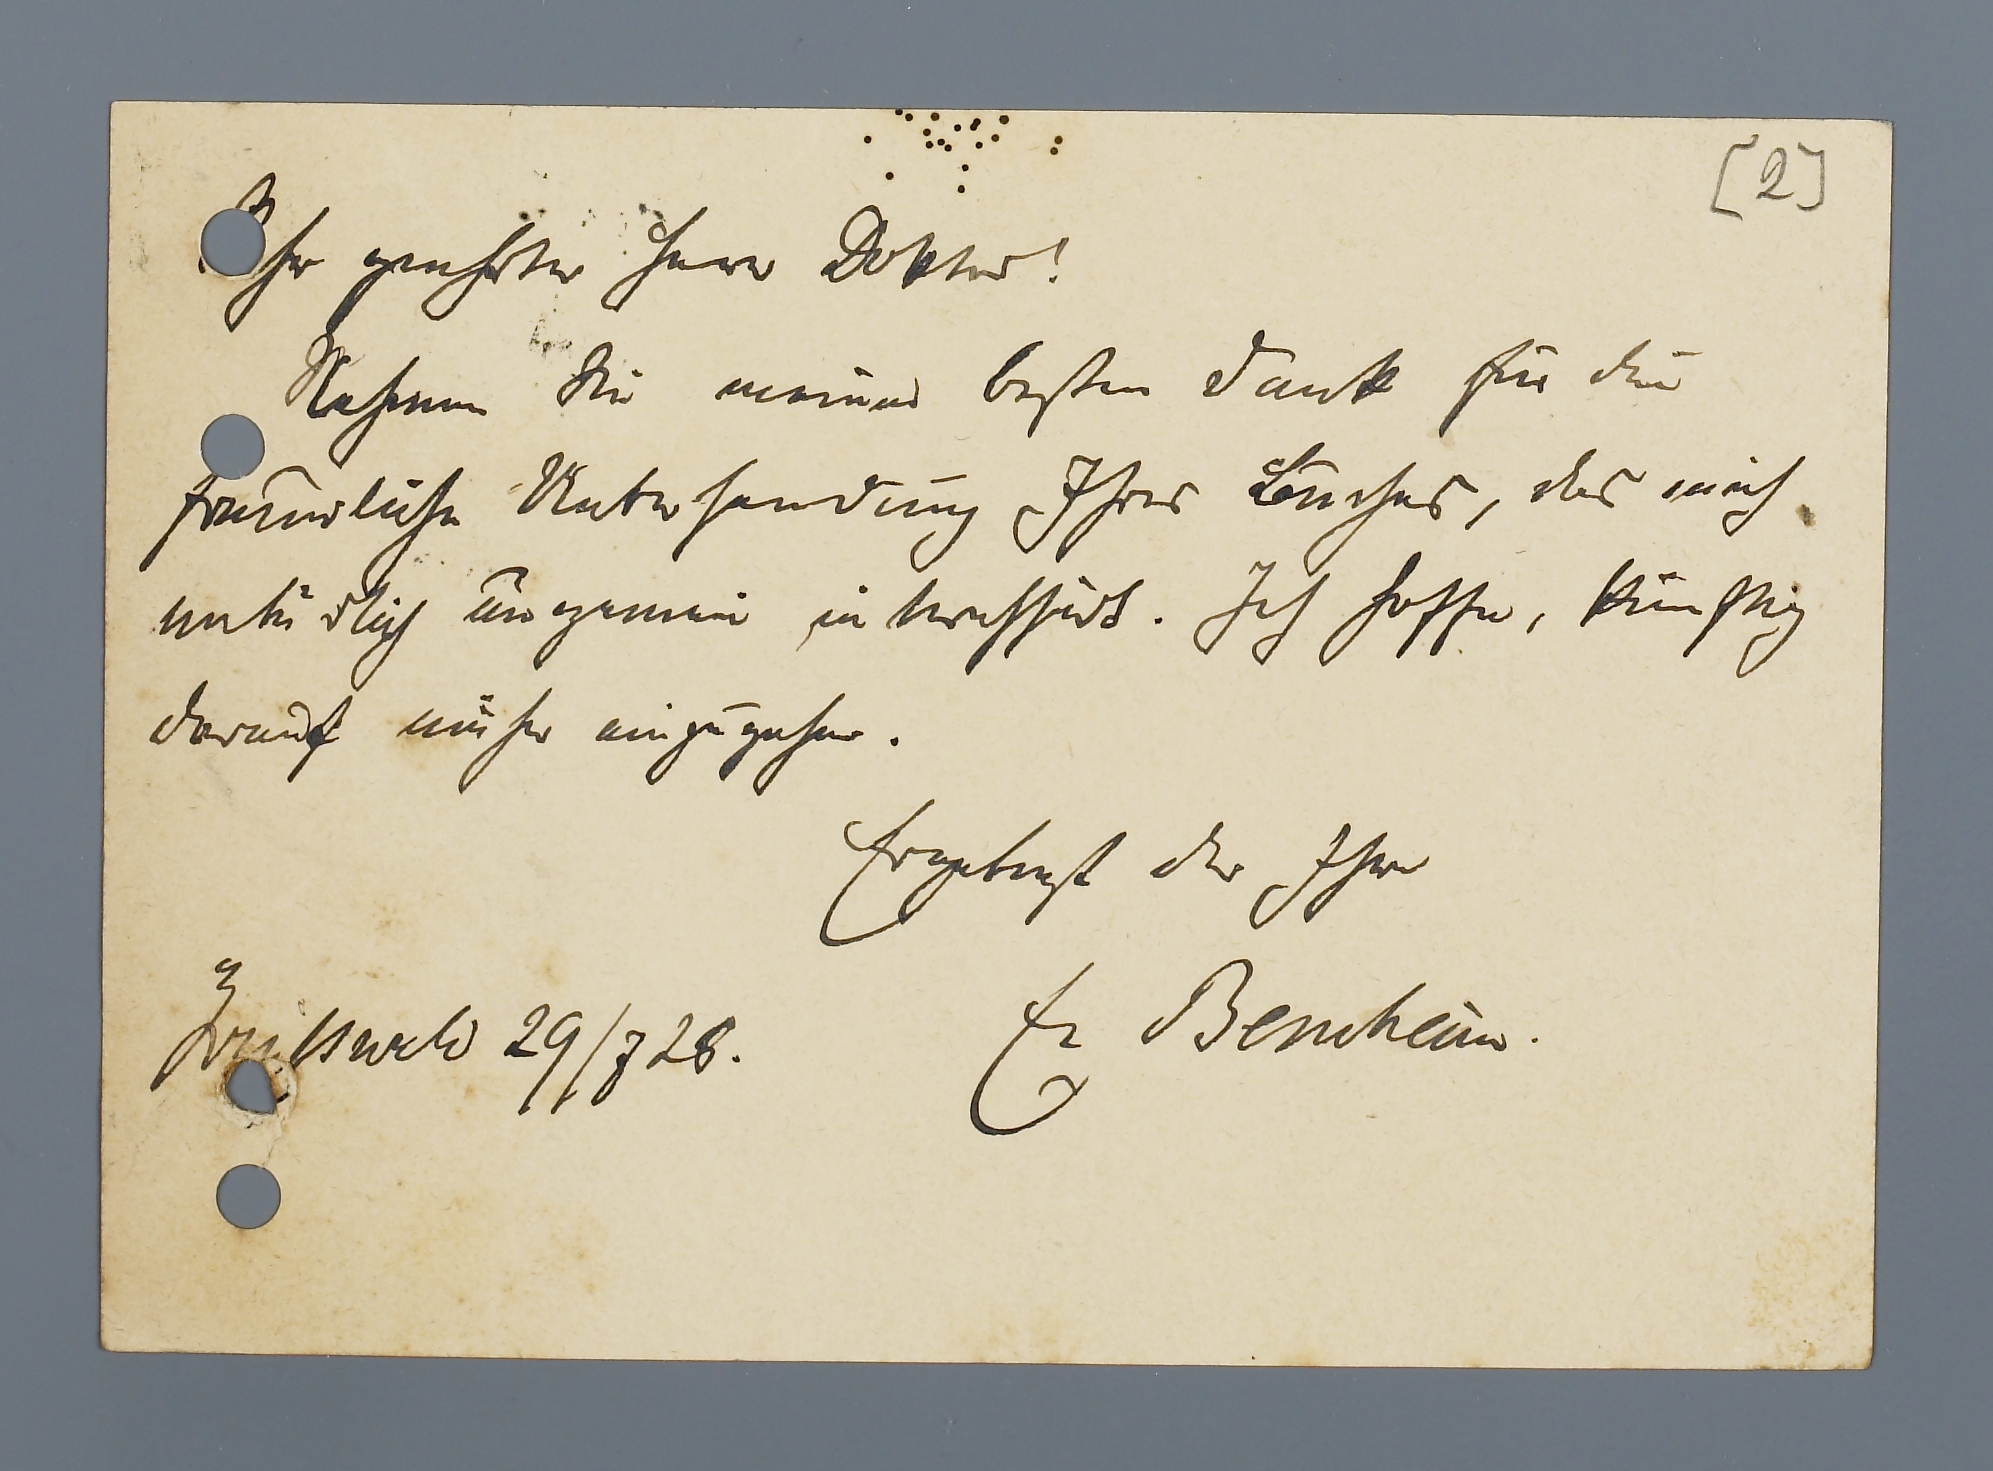 [2]
Sehr geehrter Herr Doktor!
Nehmen Sie meinen besten Dank für die
freundliche Übersendung Ihres Buches, das mich
natürlich ungemein interessirt. Ich hoffe, künftig
darauf näher einzugehen.
Ergebenst der Ihre
Greifswald 29/7 28. E Bernheim.